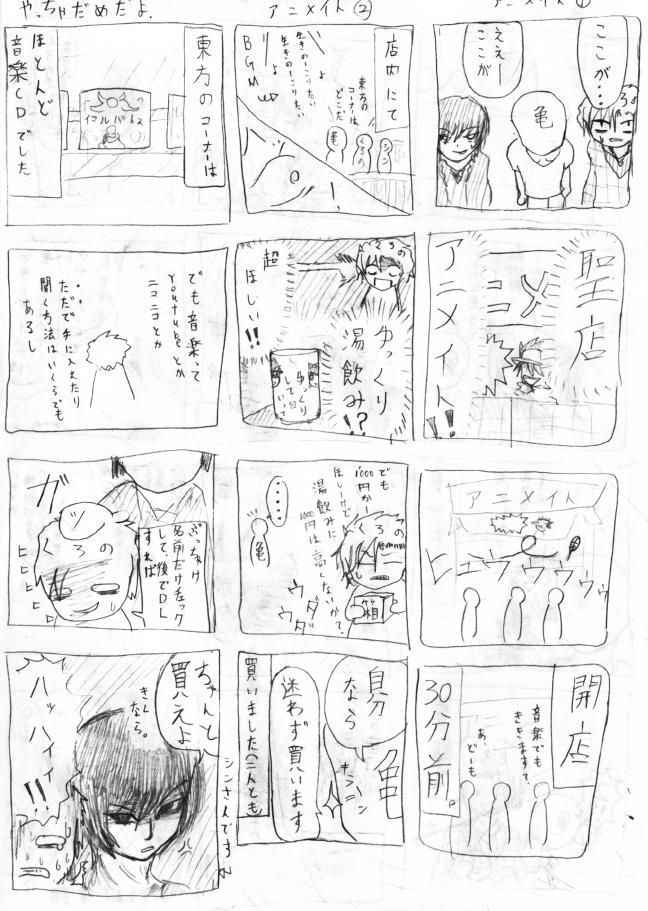 アニメイト①
ここが…
ええー
ここが
くろの
亀
聖店
アニメイト!!
アニメイト
ヒュウウウウゥ
開店
30分前。
音楽でも
ききますで?
あ、どーも
アニメイト②
店内にて
東方の
コーナーは
どこだ
シン
くろの
亀
生きのーこりたい
生きのーこりたい
BGM
くろの
ゆっくり
湯飲み?!!
超
ほしい!!
ゆっくり
していってね
でも
1000円かー
ほしーけど
湯飲みに
1000円は
高くないかて
ウダ
ウダ
くろの
箱
……
亀
自分
なら
亀
迷わず買います
キシーン
買いました(二人とも
シンさんです
や、ちゃだめだよ。
東方のコーナーは
ほとんど
音楽CDでした
でも音楽って
Youtubeとか
ニコニコとか
ただで手に入れたり
聞く方法はいくらでも
あるし
ぶっちゃけ
名前だけチェック
して、後でDL
すれば
ガッ
くろの
ヒヒヒヒ
ちゃんと
買えよ
きくなら。
ハッハイィ!!